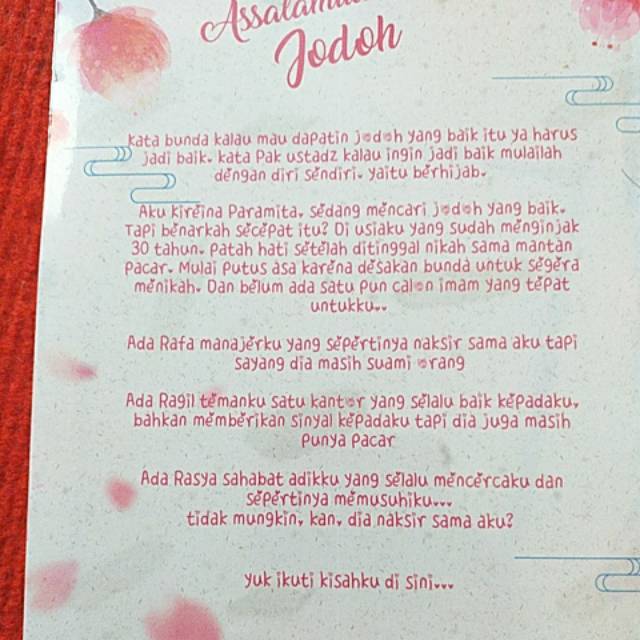 Jodoh
Kata bunda kalau mau dapatin jodoh yang baik itu ya harus
jadi baik. kata Pak ustadz kalau ingin jadi baik mulailah
dengan diri sendiri. yaitu berhijab.
Aku kireina Paramita, sedang mencari jodoh yang baik.
Tapi benarkah secepat itu? Di usiaku yang sudah menginjak
30 tahun. Patah hati setelah ditinggal nikah sama mantan
pacar. Mulai putus asa karena desakan bunda untuk segera
menikah. Dan belum ada satu pun calon imam yang tepat
untukku..
Ada Rafa manajerku yang sepertinya naksir sama aku tapi
sayang dia masih suami orang
Ada Ragil temanku satu kantor yang selalu baik kepadaku,
bahkan memberikan sinyal kepadaku tapi dia juga masih
punya pacar
Ada Rasya sahabat adikku yang selalu mencercaku dan
sepertinya memusuhiku...
tidak mungkin, kan, dia naksir sama aku?
yuk ikuti kisahku di sini...